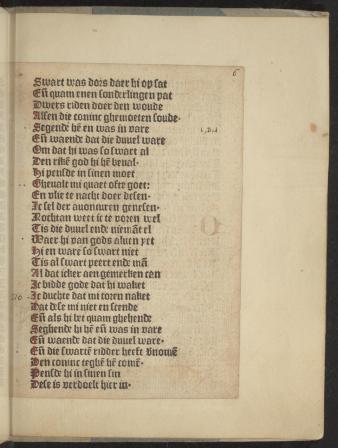 6
Swart was dors daer hi op sat
Eñ quam enen sonderlingen pat
Dwers riden doer den woude
Alsen die coninc ghemoeten soude·
Segende hē en was in vare
Eñ waende dat die duuel ware
Om dat hi was so swart al
Den rikē god hi hē beual·
Hi pensde in sinen moet
Gheualt mi quaet ofte goet:
En vlie te nacht door desen·
Ic sel der auonturen genesen·
Nochtan weet ic te voren wel
Tis die duuel ende niemāt el
Waer hi van gods aluen yet
Hi en ware so swart niet
Tis al swart peert ende mā
Al dat icker aen gemerken can
Ic bidde gode dat hi waket
Ic duchte dat mi toren naket
Dat dese mi niet en scende
Eñ als hi bet quam ghehende
Seghende hi hē eñ was in vare
Eñ waende dat die duuel ware·
Eñ die swartē ridder heeft vnomē
Den coninc teghē hē comē·
Pensde hi in sinen sin
Dese is verdoelt hier in·